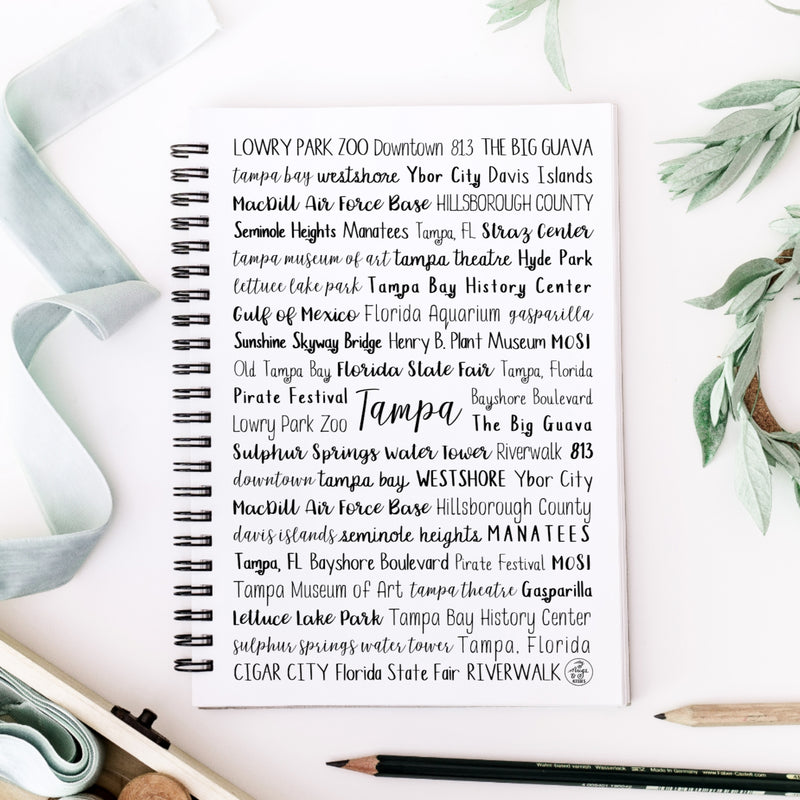 LOWRY PARK ZOO Downtown 813 THE BIG GUAVA
tampa bay westshore Ybor City Davis Islands
MacDill Air Force Base HILLSBOROUGH COUNTY
Seminole Heights Manatees Tampa, FL Straz Center
tampa museum of art tampa theatre Hyde Park
lettuce lake park Tampa Bay History Center
Gulf of Mexico Florida Aquarium gasparilla
Sunshine Skyway Bridge Henry B. Plant Museum MOSI
Old Tampa Bay Florida State Fair Tampa, Florida
Pirate Festival Bayshore Boulevard
Tampa
Lowry Park Zoo The Big Guava
Sulphur Springs Water Tower Riverwalk 813
downtown tampa bay WESTSHORE Ybor City
MacDill Air Force Base Hillsborough County
davis islands seminole heights MANATEES
Tampa, FL Bayshore Boulevard Pirate Festival MOSI
Tampa Museum of Art tampa theatre Gasparilla
Lettuce Lake Park Tampa Bay History Center
sulphur springs water tower Tampa, Florida
CIGAR CITY Florida State Fair RIVERWALK
Made in Germany www.Faber-Castell.com